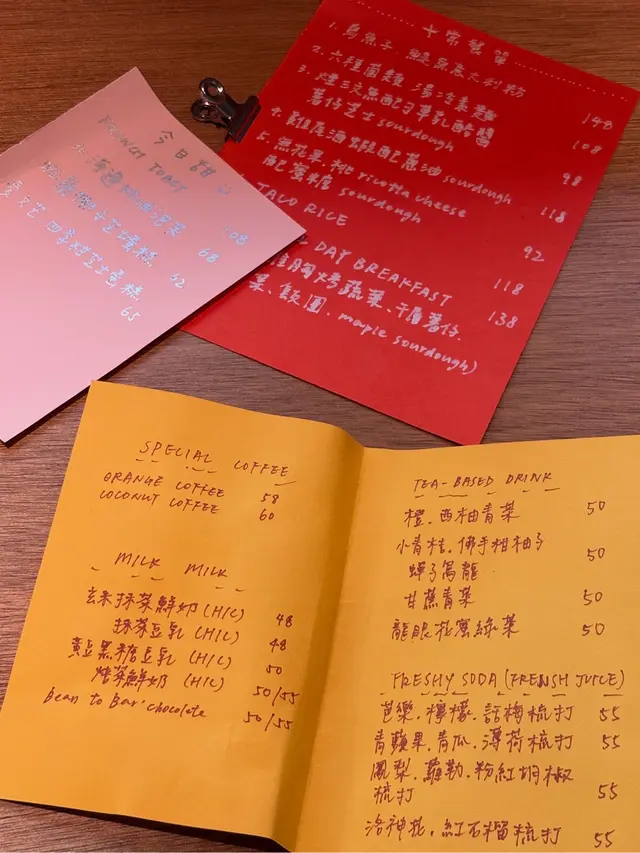 今日甜品
FRENCH TOAST
108
68
62
四季柑芝士蛋糕
65
十常餐單
1. 烏魚子．鯷魚意大利粉
148
2. 六種菌類 湯冷素麵
108
3. 煙三文魚配刁草乳酪醬
薯仔芝士 sourdough
98
4. 配蔥油 sourdough
118
5. 無花果．桃 ricotta cheese
配蜜糖 sourdough
92
TACO RICE
118
DAY BREAKFAST
138
烤蔬菜、千層薯仔．
菜、飯團．maple sourdough)
SPECIAL COFFEE
ORANGE COFFEE 58
COCONUT COFFEE 60
MILK MILK
玄米抹茶鮮奶 (H/C) 48
抹茶豆乳 (H/C) 48
黃豆黑糖豆乳 (H/C) 50
焙茶鮮奶 (H/C) 50/55
Bean to Bar chocolate 50/55
TEA-BASED DRINK
橙．西柚青茶 50
小青桔．佛手柑柚子
蟬子烏龍 50
甘蔗青茶 50
龍眼花蜜綠茶 50
FRESHY SODA (FRENSH JUICE)
芭樂．檸檬．話梅梳打 55
青蘋果．青瓜．薄荷梳打 55
鳳梨．羅勒．粉紅胡椒
梳打 55
洛神花．紅石榴梳打 55